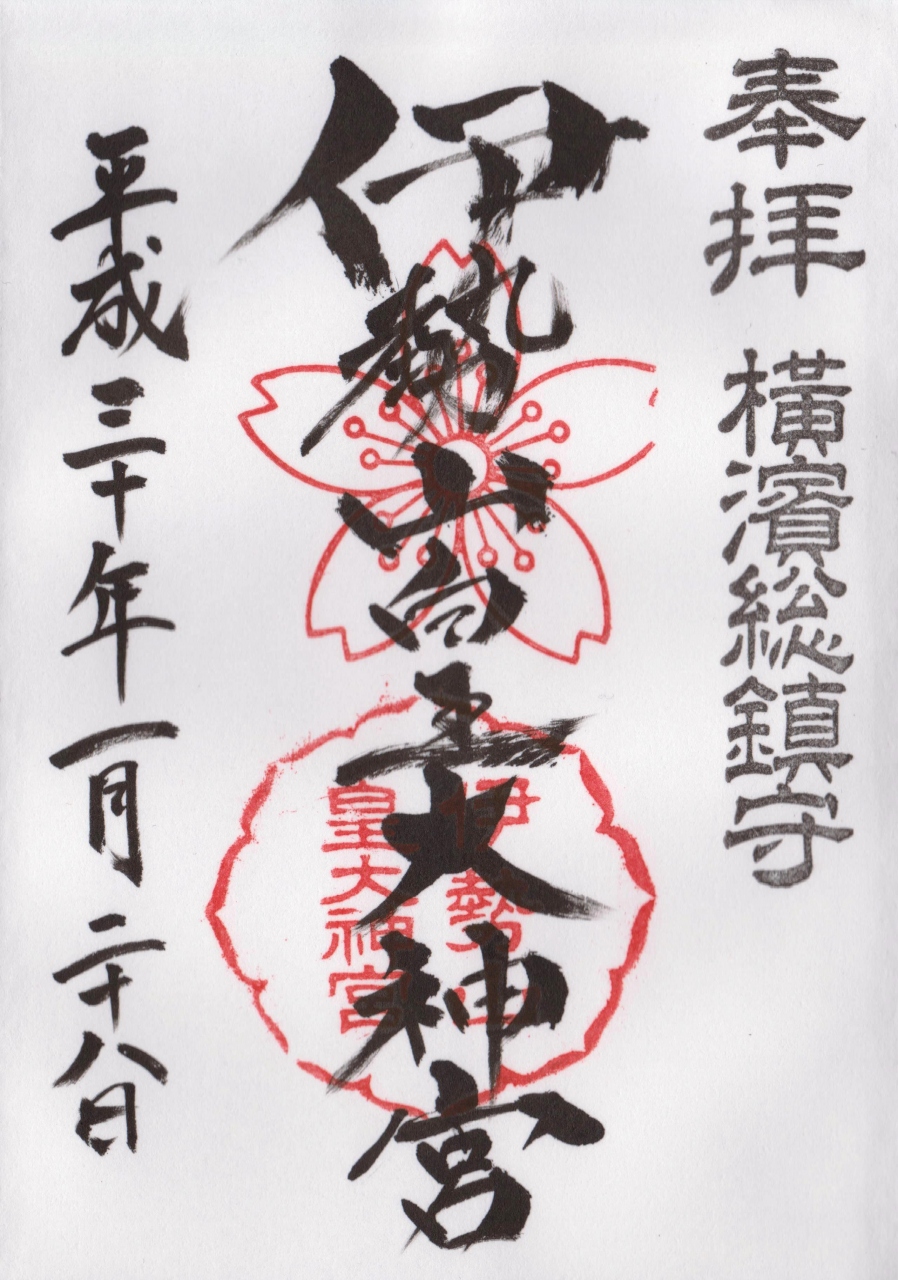 奉拝　横濱総鎮守
伊勢山皇大神宮
伊勢山
皇大神宮
平成三十年一月二十八日